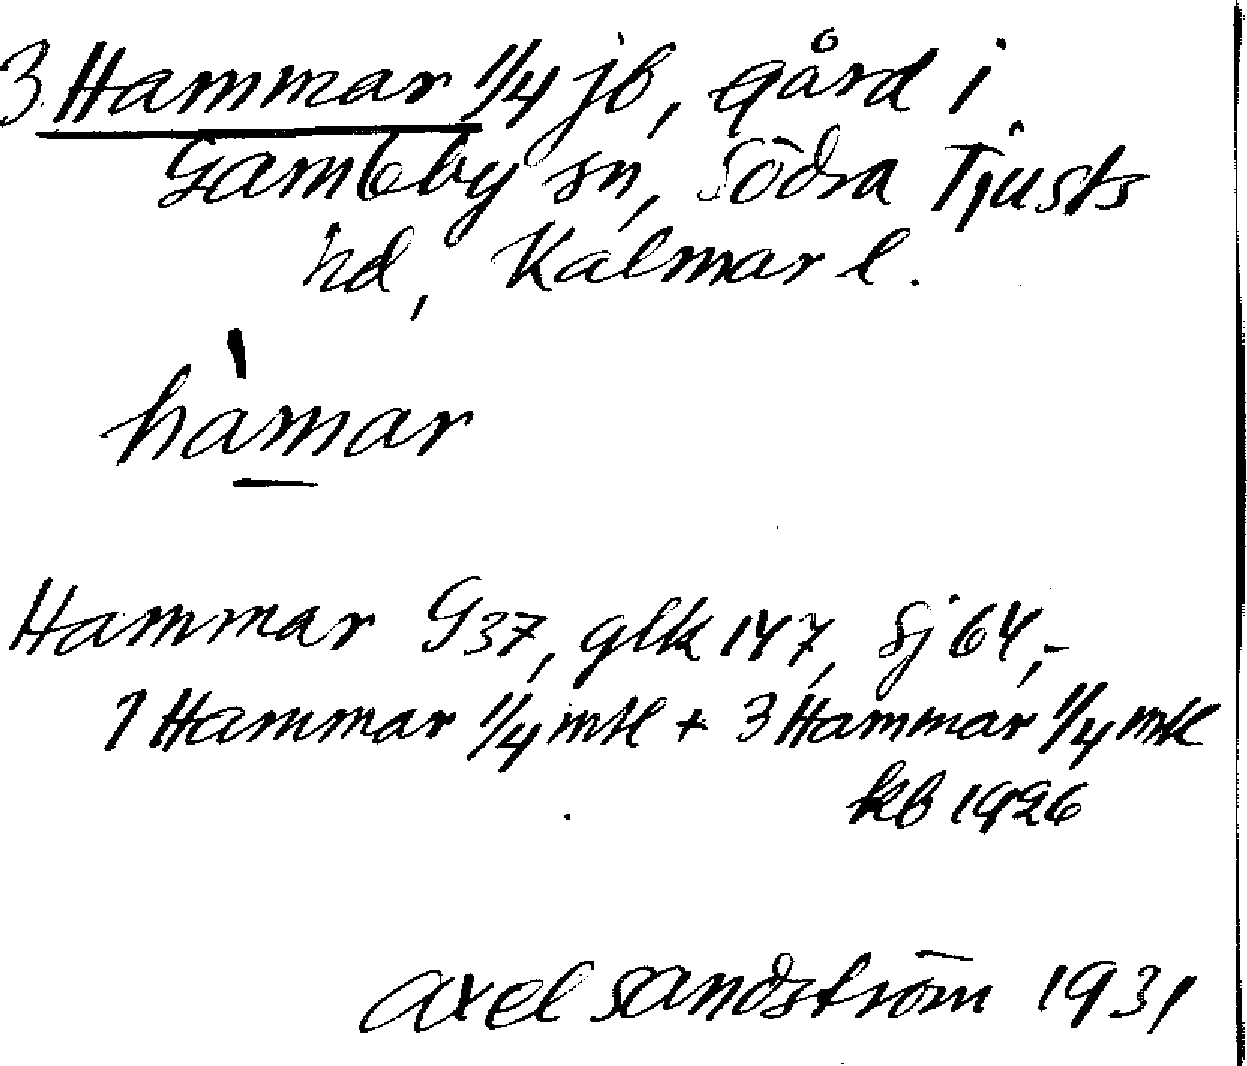 3 Hammar 1/4 jb, gård i
Gamleby sn, Södra Tjusts
hd, Kalmar l.
hàmar
Hammar G37, glk 147, Sj 64,-
1 Hammar 1/4 mtl + 3 Hammar 1/4 mtl
kb 1926
Axel Sandström 1931